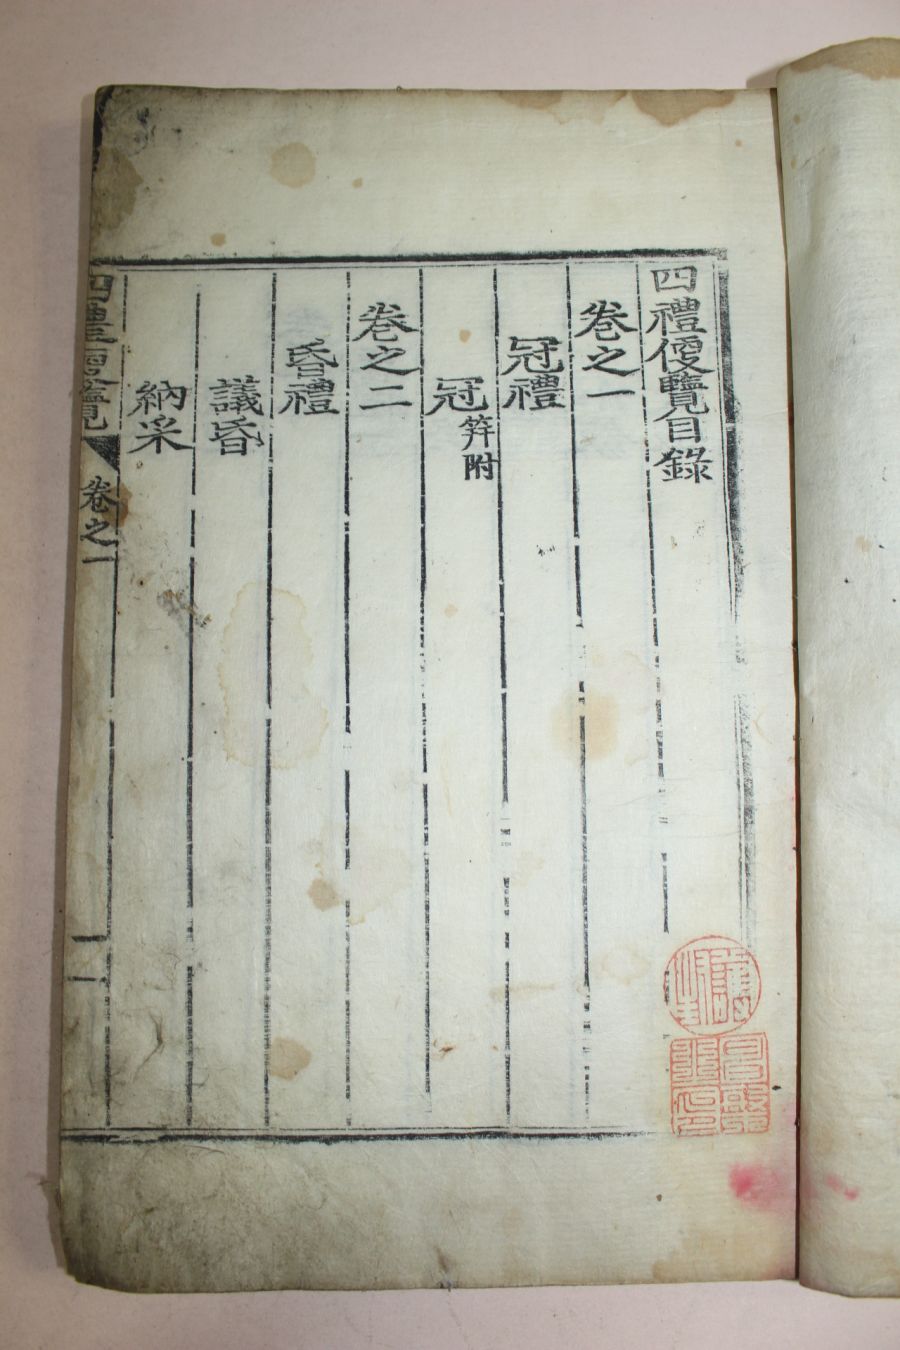 四禮便覽目錄
卷之一
冠禮
冠笄附
卷之二
昏禮
議昏
納采
四禮便覽
卷之一
一